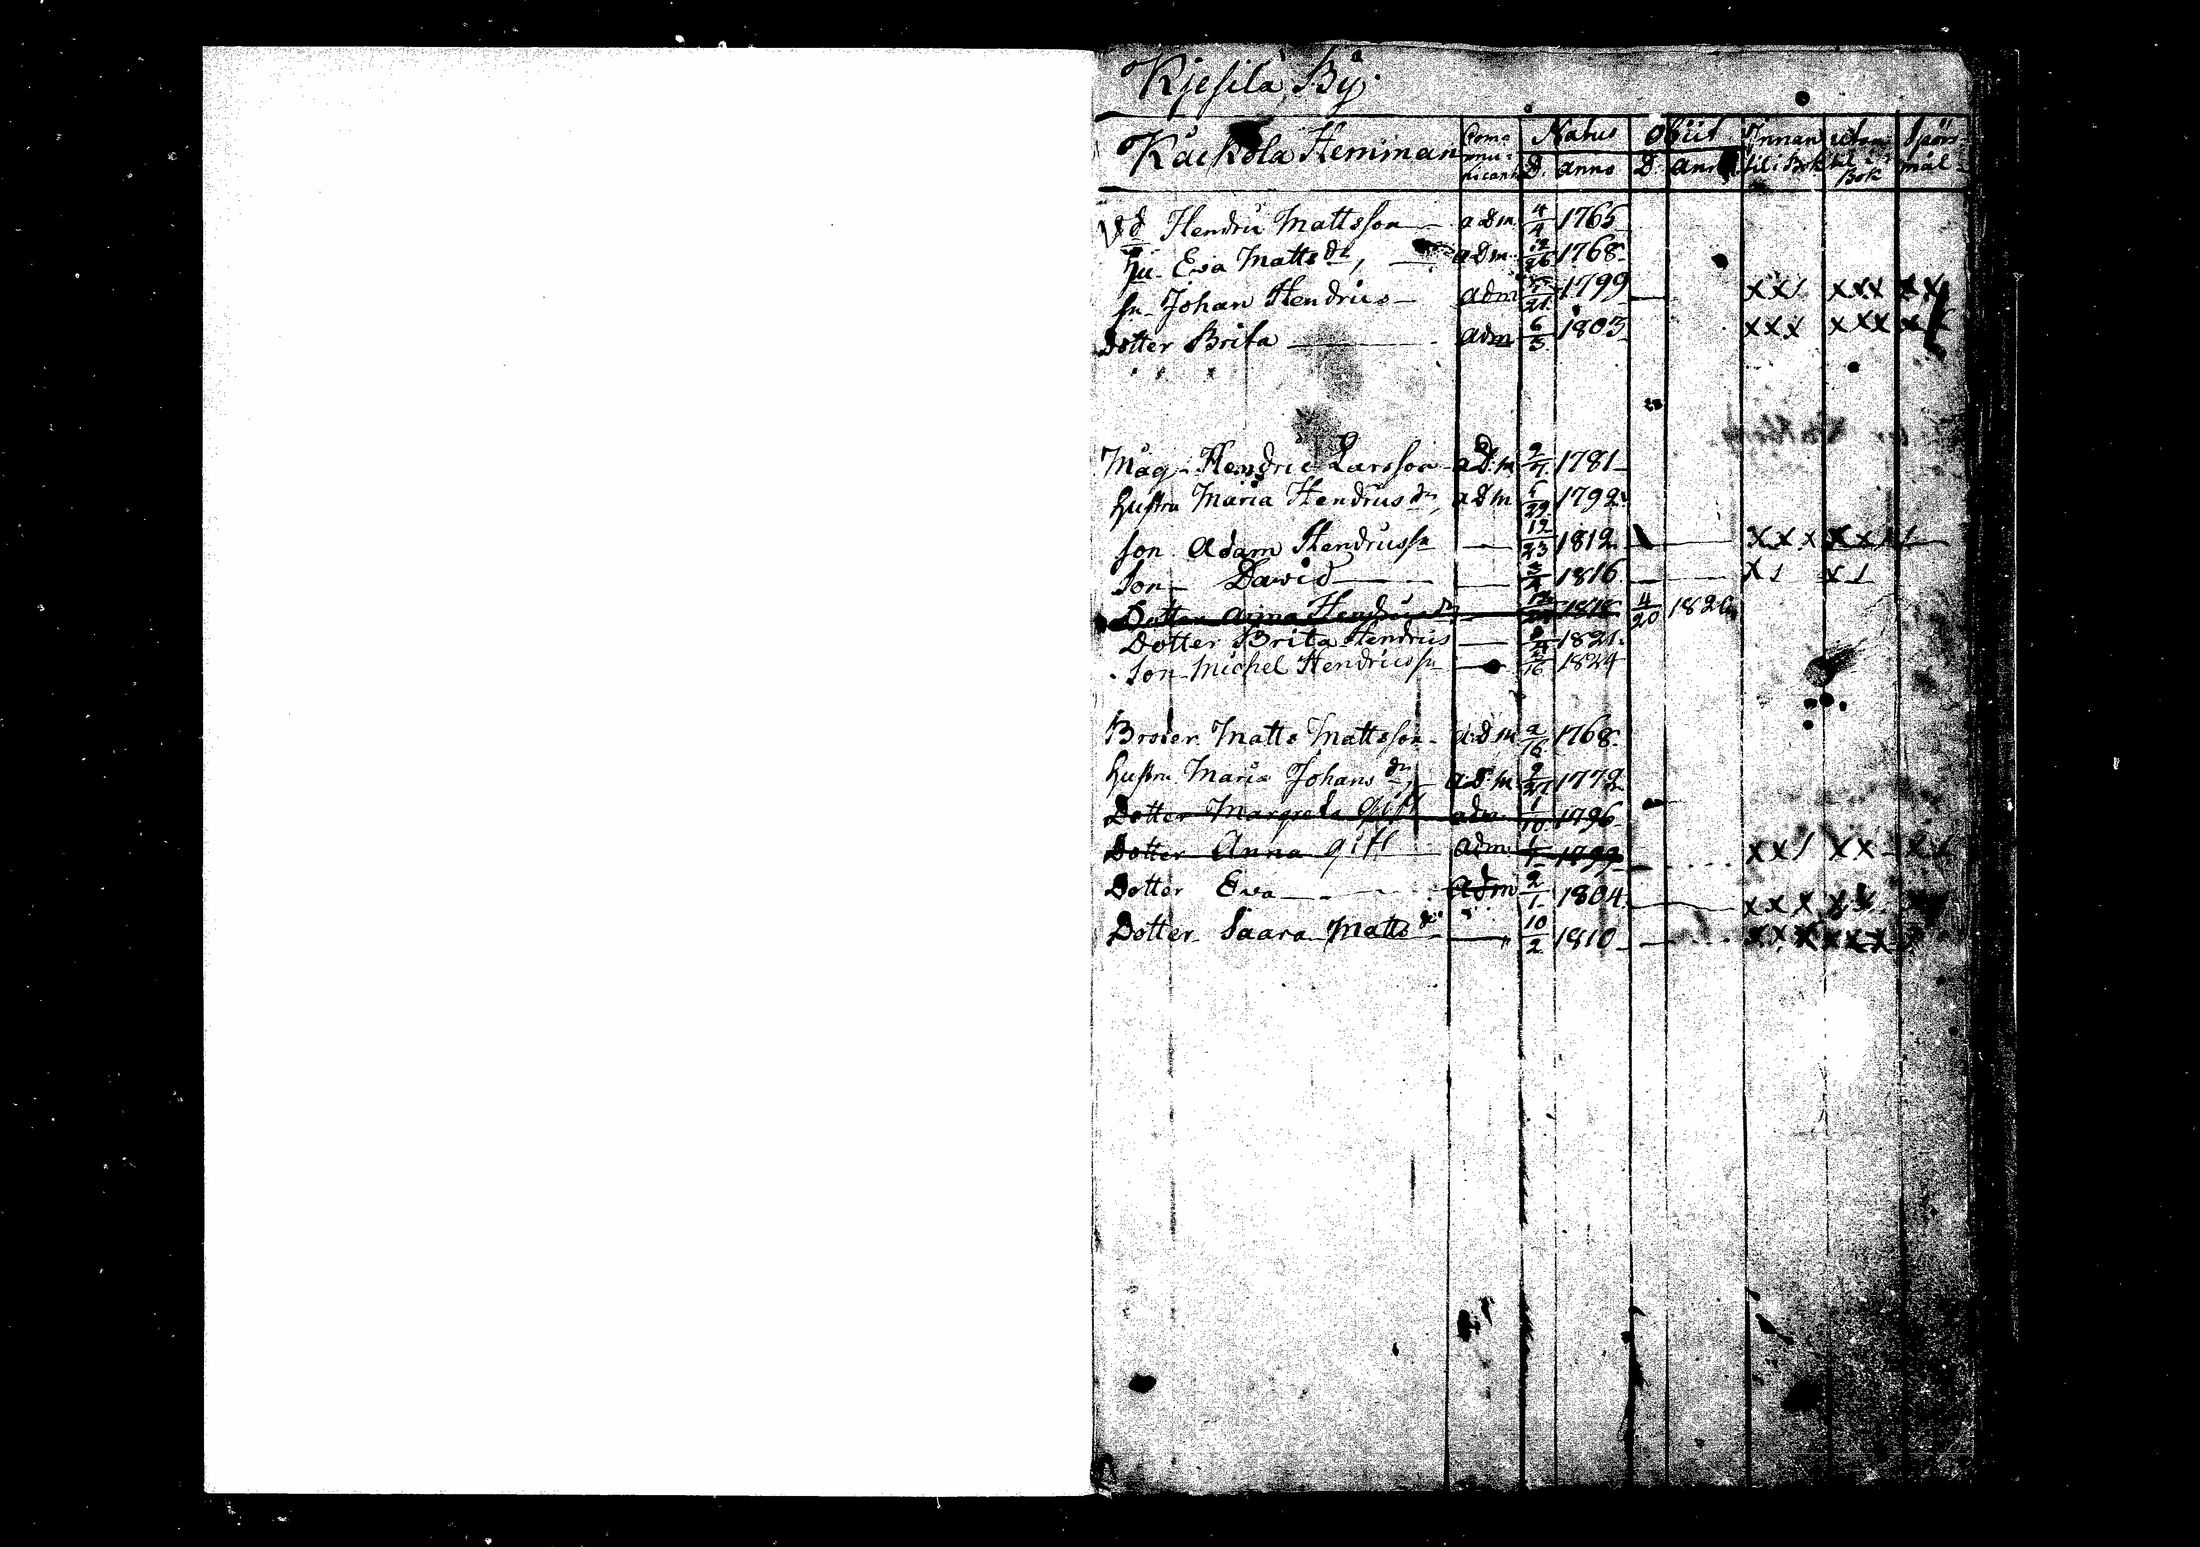 Kjesila By
Kackola Hemman Com= mu= nicant Natus D. anno Obiit D. ann Innan til i Bok utan til Bok Spörs= mål
Hendric Mattsson adm. 4/4 1765
hu. Eva Matts dr, adm. 12/26 1768
sn. Johan Hendrics adm 1799 xx/ xxx xx
Dotter Brita adm 6/3 1803 xxx xxx xx
Måg. Hendric Larsson adm 1781
hustru Maria Hendricsdr adm 1792
son. Adam Hendricssn 12/23 1812 xxx xxx
Son David 1816 x/ x/
Dotter Anna Hendricsdr 4/20 182
Dotter Brita Hendrics 1821
Son Michel Hendricssn 1824
Broder Matts Mattsson adm 2/16 1768
hustru Maria Johans dr adm 1772
Dotter Margreta gift adm 1/10 1796
Dotter Anna gift adm 1799 xx/ xx xx
Dotter Eva adm 2/1 1804 xxx
Dotter Saara Matts dr 10/2 1810 xxx xxx x